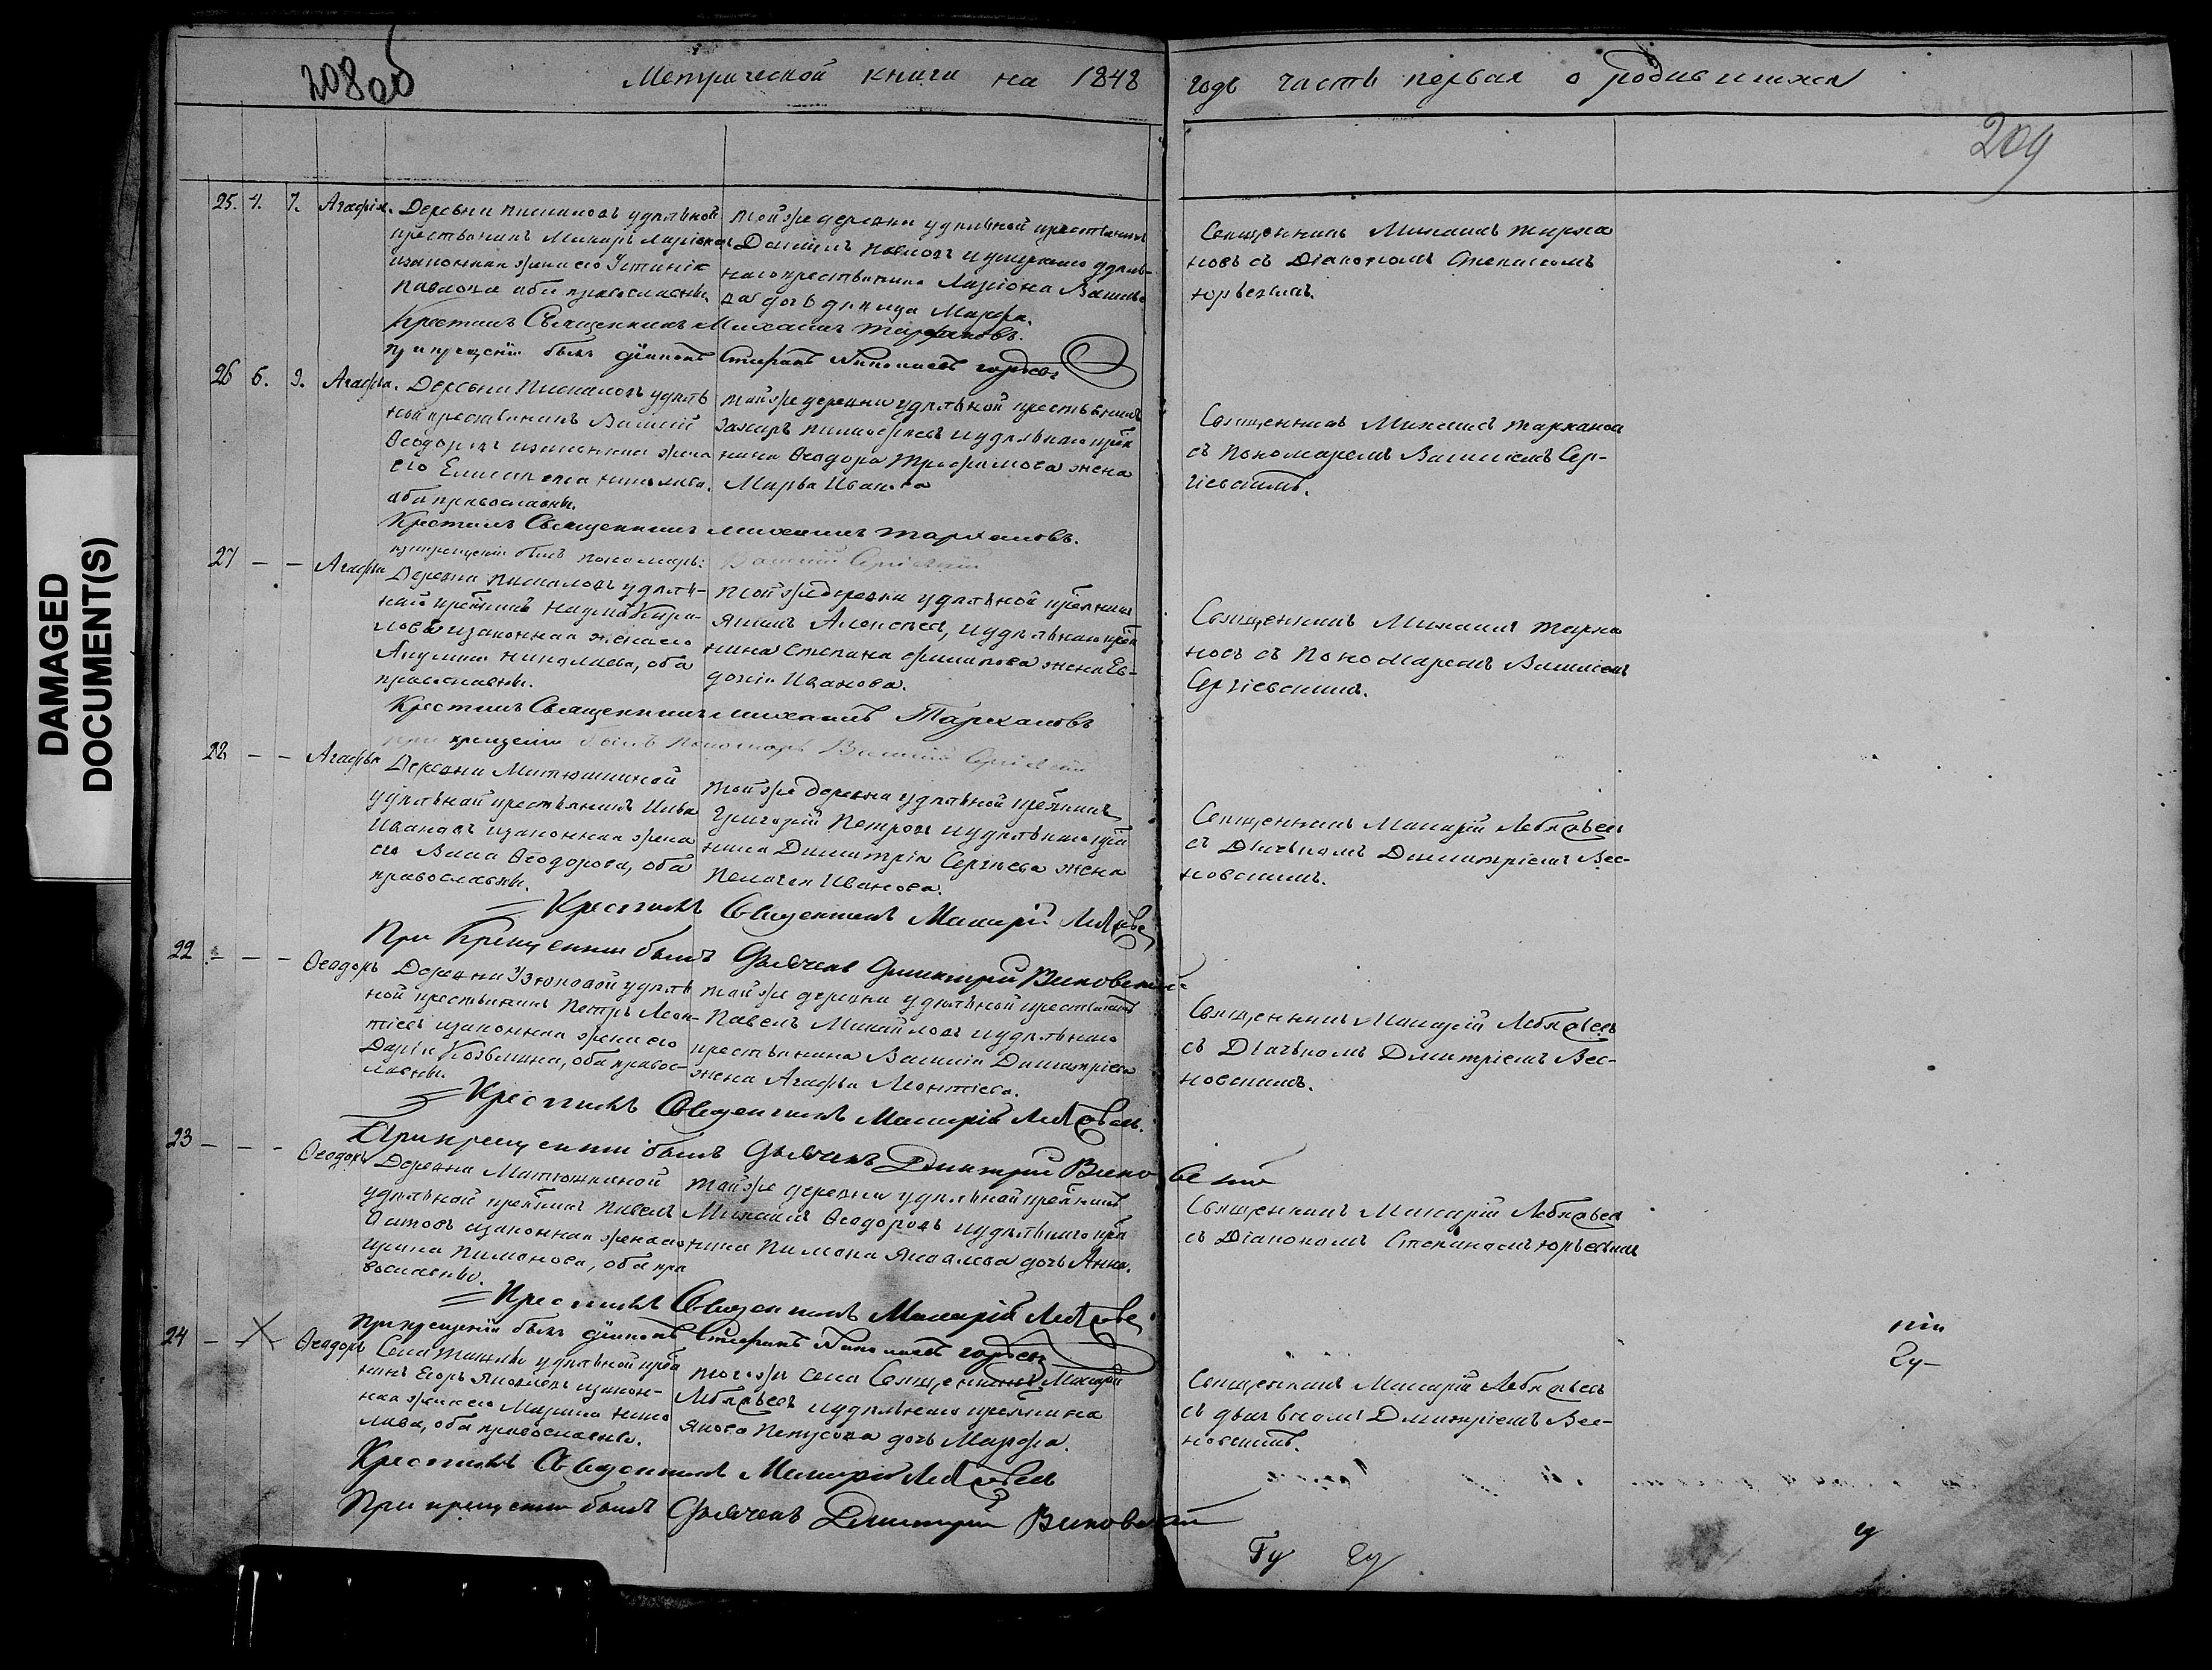 208об
Метрической книги на 1848 годъ часть первая о родившихся
209
DAMAGED
DOCUMENT(S)
25. 4. 7. Агафія. Деревни Пискаловъ удѣльной
крестьянинъ Макаръ Ларіоновъ
изаконная жена его Устинія
Павлова оба православны.
той же деревни удѣльной крестьянинъ
Даніилъ Павловъ иумершаго удѣль-
наго крестьянина Ларіона Василье
ва дочь дѣвица Марфа.
Священникъ Михаилъ Тарха
новъ съ Діакономъ Стефаномъ
Юрьевымъ.
Крестилъ Священникъ Михаилъ Тархановъ.
При крещеніи былъ діаконъ Стефанъ Николаевъ
26 6. 9. Агафья. Деревни Пискаловъ удѣль
ной крестьянинъ Василій
Ѳеодоровъ изаконная жена
его Елисавета Николаева.
оба православны.
той же деревни удѣльной крестьянинъ
Захаръ иудѣльнаго крестя
нина Ѳеодора Трофимова жена
Марѳа Иванова
Священникъ Михаилъ Тарханов
съ Пономаремъ Василіемъ Сер-
гіевскимъ.
Крестилъ Священникъ Михаилъ Тархановъ.
при крещеніи былъ пономарь: Василій Сергіевскій
27 – – Агафья Деревни Пискаловъ удѣль-
ной крестянинъ Наумъ Кири-
ловъ изаконная жена его
Акулина Николаева, оба
православны.
той же деревни удѣльной крестянинъ
Якимъ Алексѣевъ, иудѣльнаго крестя
нина Степана Филипова жена Ев-
докія Иванова.
Священникъ Михаилъ Тарха
новъ съ Пономаремъ Василіемъ
Сергіевскимъ.
Крестилъ Священникъ Михаилъ Тархановъ
при крещеніи былъ Пономарь Василій Сергіевскій
28 – – Агафья Деревни Митюшкиной
удѣльной крестьянинъ
Ивановъ изаконная жена
его Васа Ѳеодорова, оба
православны.
той же деревни удѣльной крестянинъ
Григорій Петровъ иудѣльнаго крестя
нина Димитрія Сергѣева жена
Пелагея Иванова.
Священникъ Макарій Лебедевъ
съ Дьячкомъ Димитріемъ Вес-
новскимъ.
Крестилъ Священникъ Макарій Лебедевъ
При Крещении былъ Дьячекъ Димитрій
22 – – – Ѳеодоръ Деревни Узюковой удѣль
ной крестьянинъ Петръ Леон-
тіевъ изаконная жена его
Дарія Козьмина, оба правос-
лавны.
той же деревни удѣльной крестьянинъ
Павелъ Михайловъ иудѣльнаго
крестьянина Василія Димитріева
жена Агафья Леонтіева.
Священникъ Макарій Лебедевъ
съ Дьячкомъ Дмитріемъ Вес-
новскимъ.
Крестилъ Священникъ Макарій Лебедевъ.
При крещении былъ Дьячекъ Дмитрий
23 – – – Ѳеодоръ Деревни Митюшкиной
удѣльной крестянинъ Павелъ
изаконная жена его
Ирина Пимонова, оба пра
вославны.
той же деревни удѣльной крестянинъ
Михаилъ Ѳеодоровъ иудѣльнаго крестя
нина Пимона Яковлева дочь Анна.
Священникъ Макарій Лебедевъ
съ Діакономъ Стефаномъ Юрьевымъ
Крестилъ Священникъ Макарій Лебедевъ
При крещеніи былъ діаконъ Стефанъ Николаевъ
24 – X Ѳеодоръ Села удѣльной крестя
нинъ Егоръ Яковлевъ изакон-
ная жена его Марина Нико
лаева, оба православны.
того же села Священникъ Макарій
Лебедевъ иудѣльнаго крестянина
Якова дочь Марфа.
Священникъ Макарій Лебедевъ
съ дьячкомъ Дмитріемъ Вес-
новскимъ.
Крестилъ Священникъ Макарій Лебедевъ
При крещении былъ Дьячекъ Димитрий